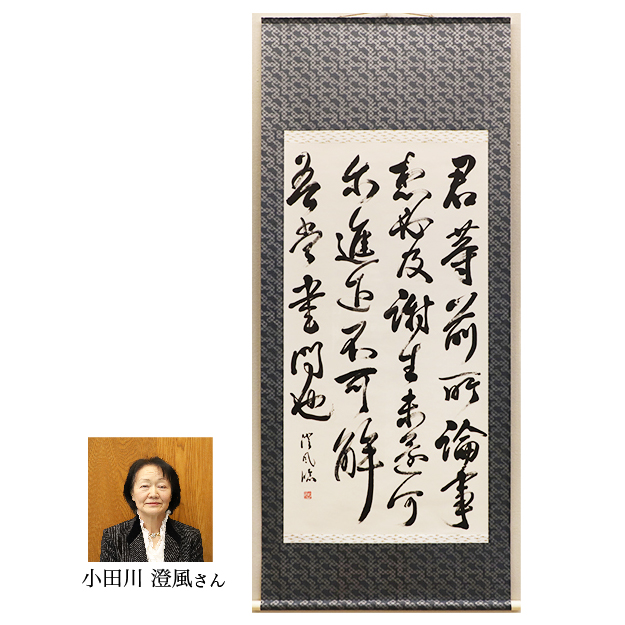 君等前所論事
想必及謝生未還可
尓進退不可解
吾當書問也
澄風臨
小田川 澄風さん